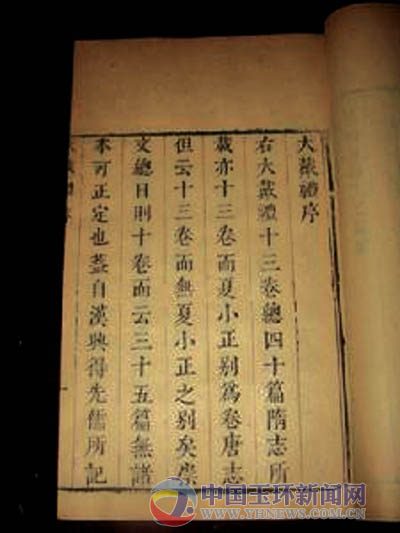 大戴禮序
右大戴禮十三卷總四十篇隋志所
載亦十三卷而夏小正别爲卷唐志
但云十三卷而無夏小正之别矣崇
文總目則十卷而云三十五篇無諸
本可正定也蓋自漢興得先儒所記
中国玉环新闻网
WWW.YHNEWS.COM.CN